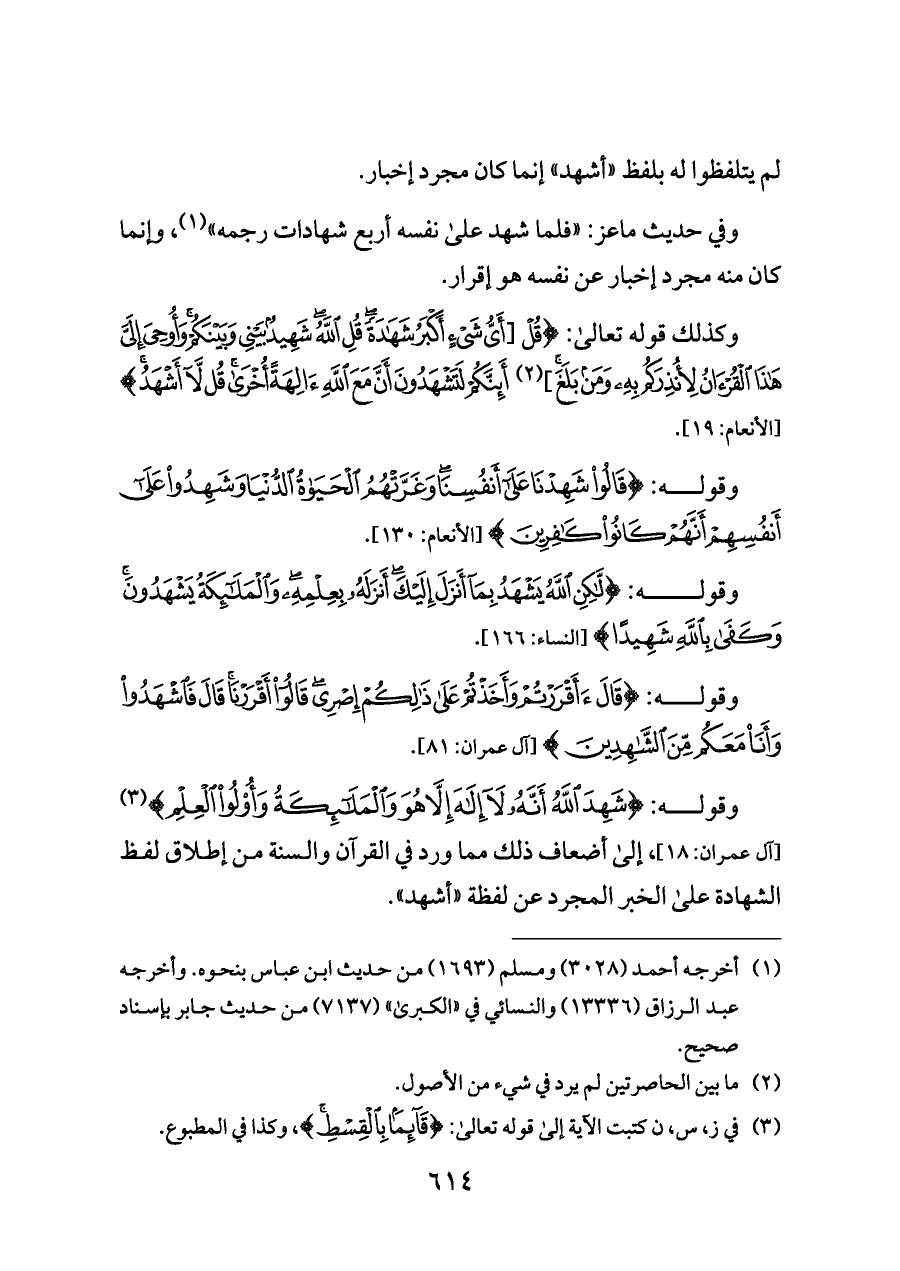 لم يتلفظوا له بلفظ «أشهد» إنما كان مجرد إخبار.
وفي حديث ماعز: «فلما شهد علىٰ نفسه أربع شهادات رجمه»(١)، وإنما
كان منه مجرد إخبار عن نفسه هو إقرار.
وكذلك قوله تعالىٰ: ﴿قُلْ [أَيُّ شَيْءٍ أَكْبَرُ شَهَٰدَةٗۖ قُلِ ٱللَّهُۖ شَهِيدُۢ بَيْنِي وَبَيْنَكُمْۚ وَأُوحِيَ إِلَيَّ
هَٰذَا ٱلْقُرْءَانُ لِأُنذِرَكُم بِهِۦ وَمَنۢ بَلَغَۚ](٢) أَئِنَّكُمْ لَتَشْهَدُونَ أَنَّ مَعَ ٱللَّهِ ءَالِهَةً أُخْرَىٰۚ قُل لَّآ أَشْهَدُۚ﴾
[الأنعام: ١٩].
وقولـــــه: ﴿قَالُوا۟ شَهِدْنَا عَلَىٰٓ أَنفُسِنَاۖ وَغَرَّتْهُمُ ٱلْحَيَوٰةُ ٱلدُّنْيَا وَشَهِدُوا۟ عَلَىٰٓ
أَنفُسِهِمْ أَنَّهُمْ كَانُوا۟ كَٰفِرِينَ﴾ [الأنعام: ١٣٠].
وقولـــــــه: ﴿لَّٰكِنِ ٱللَّهُ يَشْهَدُ بِمَآ أَنزَلَ إِلَيْكَۖ أَنزَلَهُۥ بِعِلْمِهِۦۖ وَٱلْمَلَٰٓئِكَةُ يَشْهَدُونَۚ
وَكَفَىٰ بِٱللَّهِ شَهِيدًا﴾ [النساء: ١٦٦].
وقولـــــه: ﴿قَالَ ءَأَقْرَرْتُمْ وَأَخَذْتُمْ عَلَىٰ ذَٰلِكُمْ إِصْرِيۖ قَالُوٓا۟ أَقْرَرْنَاۚ قَالَ فَٱشْهَدُوا۟
وَأَنَا۠ مَعَكُم مِّنَ ٱلشَّٰهِدِينَ﴾ [آل عمران: ٨١].
وقولـــــه: ﴿شَهِدَ ٱللَّهُ أَنَّهُۥ لَآ إِلَٰهَ إِلَّا هُوَ وَٱلْمَلَٰٓئِكَةُ وَأُو۟لُوا۟ ٱلْعِلْمِ﴾(٣)
[آل عمران: ١٨]، إلىٰ أضعاف ذلك مما ورد في القرآن والسنة من إطلاق لفظ
الشهادة علىٰ الخبر المجرد عن لفظة «أشهد».
(١) أخرجه أحمد (٣٠٢٨) ومسلم (١٦٩٣) من حديث ابن عباس بنحوه. وأخرجه
عبد الرزاق (١٣٣٣٦) والنسائي في «الكبرىٰ» (٧١٣٧) من حديث جابر بإسناد
صحيح.
(٢) ما بين الحاصرتين لم يرد في شيء من الأصول.
(٣) في ز، س، ن كتبت الآية إلىٰ قوله تعالىٰ: ﴿قَآئِمَۢا بِٱلْقِسْطِۚ﴾، وكذا في المطبوع.
٦١٤